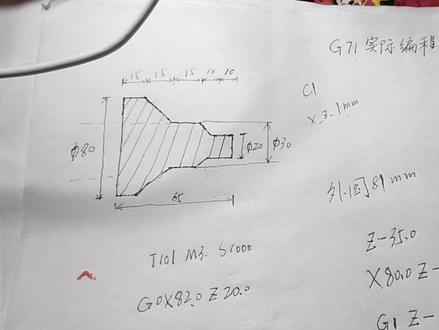 G71 实际编程
15 15 15 10 10
C1
X.Z.1mm
φ80
φ20
φ30
外.圆81mm
65
T101 M3. S1000
Z-35.0
G0X82.0 Z20.0
X80.0 Z-
G1 Z-